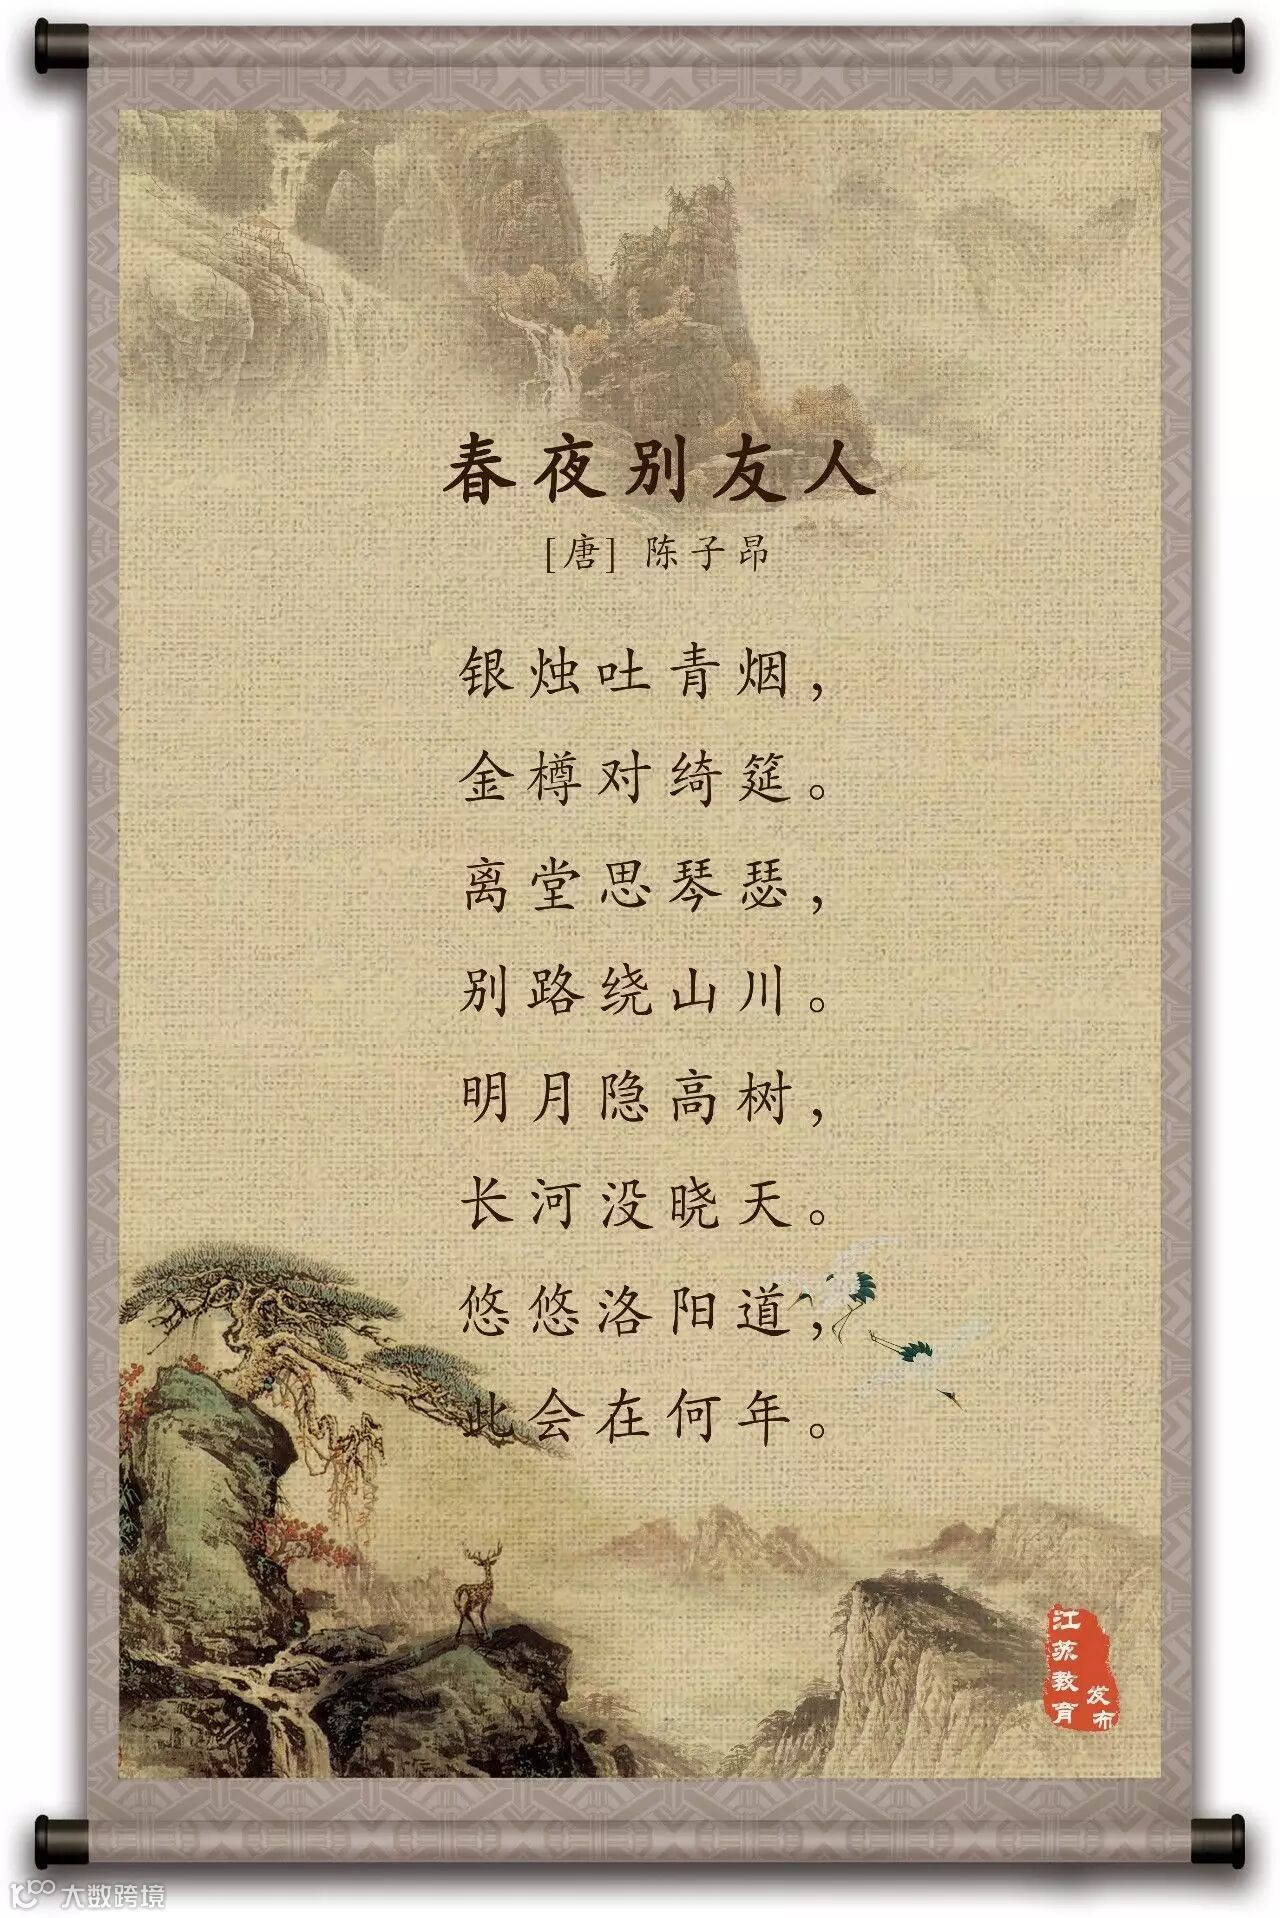 春夜别友人
[唐] 陈子昂
银烛吐青烟，
金樽对绮筵。
离堂思琴瑟，
别路绕山川。
明月隐高树，
长河没晓天。
悠悠洛阳道，
此会在何年。
江苏教育
发布
大数跨境